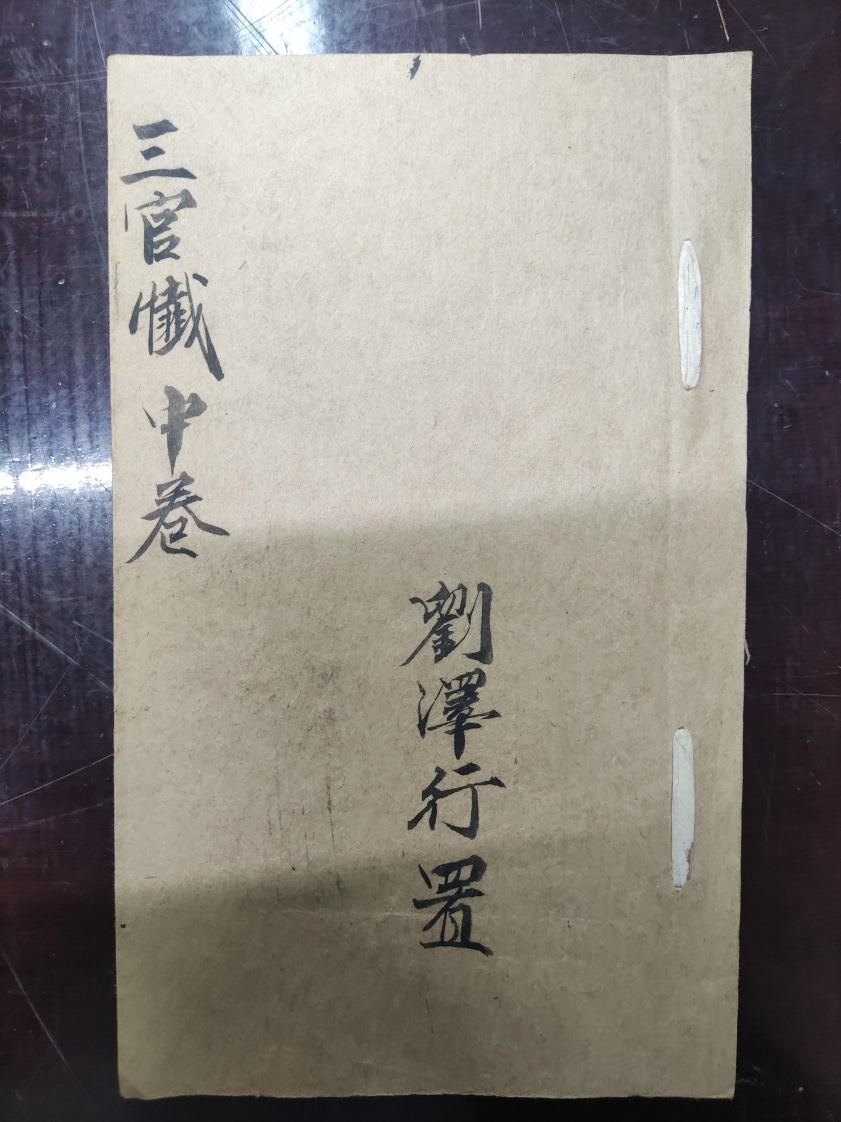 三官懺中卷
劉澤行置